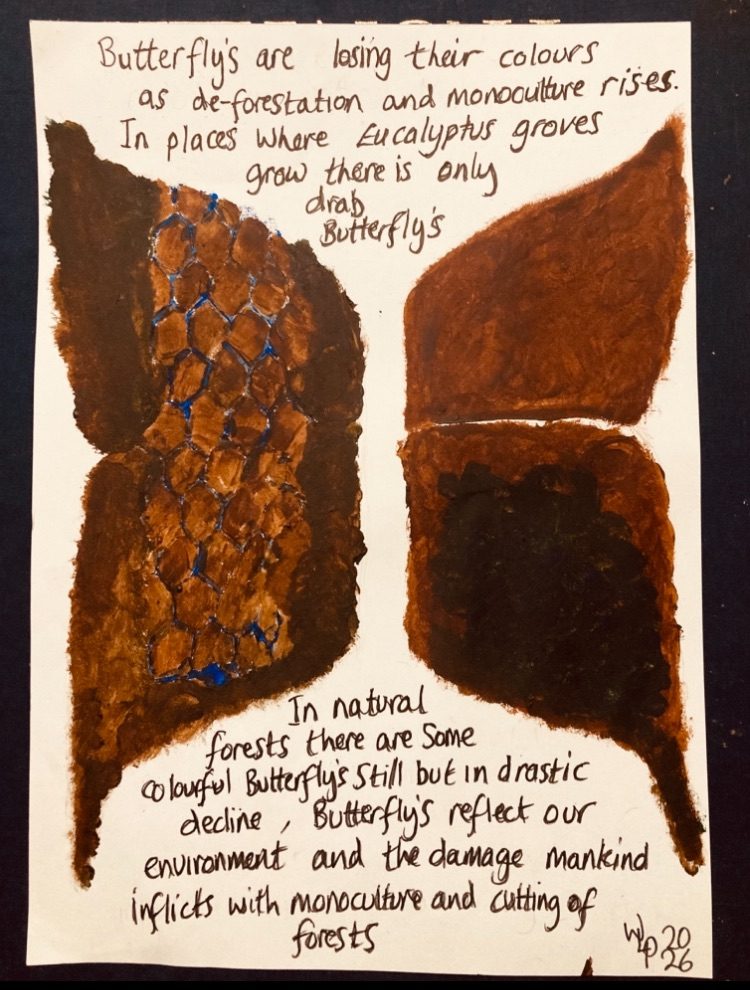 Butterfly's are losing their colours
as de-forestation and monoculture rises.
In places where Eucalyptus groves
grow there is only
drab
Butterfly's
In natural
forests there are some
colourful Butterfly's still but in drastic
decline, Butterfly's reflect our
environment and the damage mankind
inflicts with monoculture and cutting of
forests
WLP 20
26